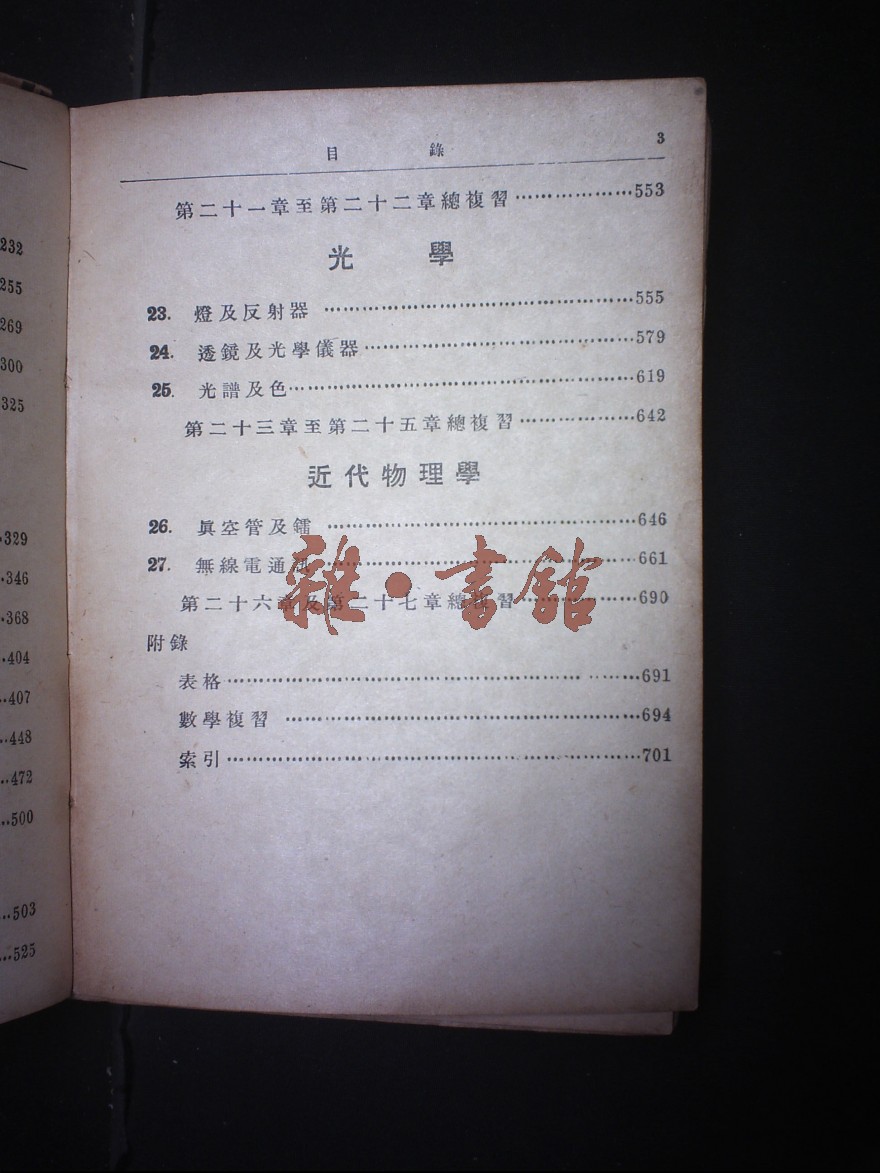 232
255
269
300
325
329
346
368
404
407
448
472
500
503
525
目錄 3
第二十一章至第二十二章總複習………………553
光學
23. 燈及反射器………………555
24. 透鏡及光學儀器………………579
25. 光譜及色………………619
第二十三章至第二十五章總複習………………642
近代物理學
26. 眞空管及鐳………………646
27. 無線電通訊………………661
第二十六章及第二十七章總複習………………690
附錄
表格………………691
數學複習………………694
索引………………701
雜·書館